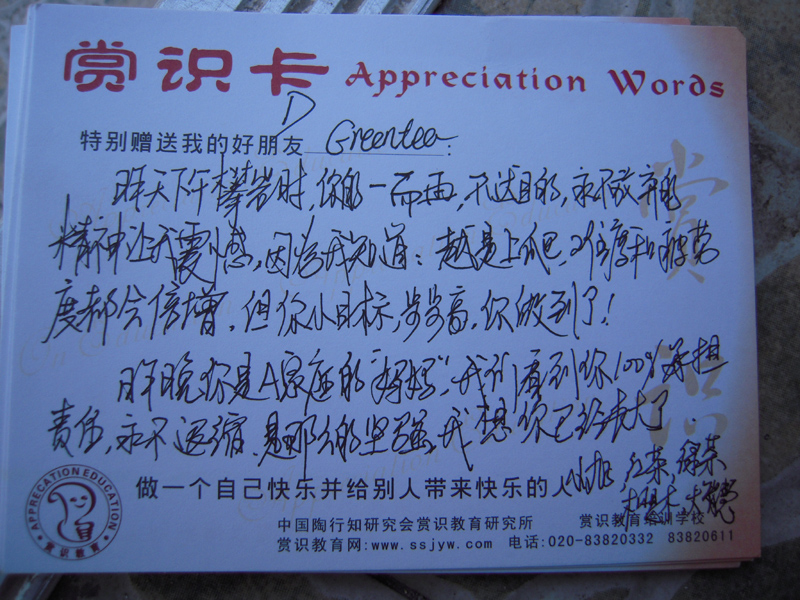 赏识卡 Appreciation Words
D
特别赠送我的好朋友 Greentea :
昨天下午攀岩时,你的一而再,不达目的,永不放弃的
精神让我震撼,因为我知道:越是上爬,难度和疲劳
度都会倍增,但你小目标,步步高,你做到了!
昨晚你是A家庭的"妈妈",我们看到你100%承担
责任,永不退缩,是那么的坚强,我想你已经长大了
做一个自己快乐并给别人带来快乐的人
小旭 红菜
中国陶行知研究会赏识教育研究所 赏识教育培训学校
赏识教育网:www.ssjyw.com 电话:020-83820332 83820611
APPRECATION EDUCATION
赏识教育
赏识